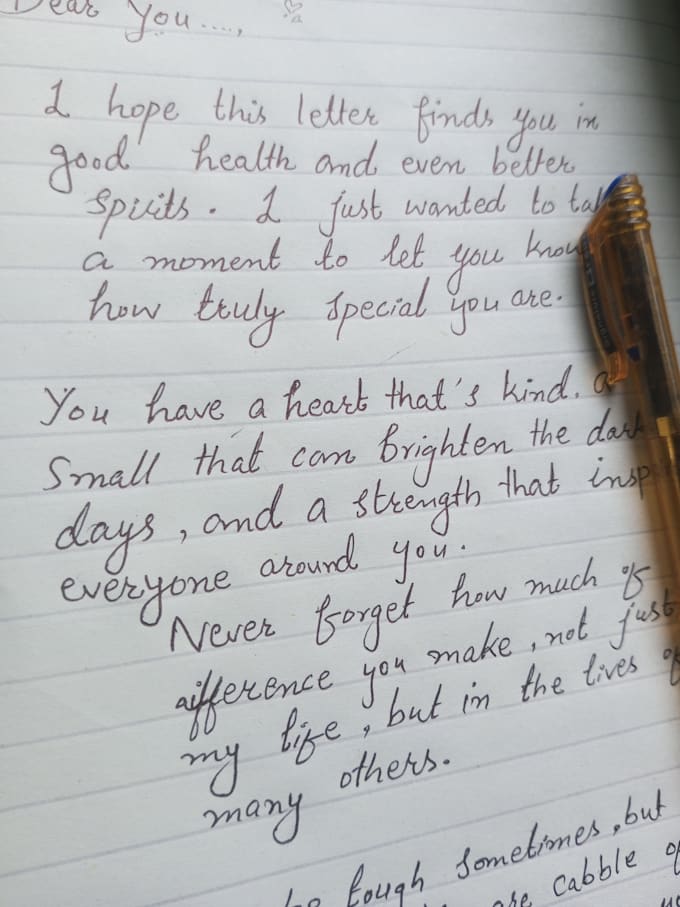 Dear You....,
I hope this letter finds you in
good health and even better
spirits. I just wanted to
a moment to let you know
how truly special you are.
You have a heart that's kind. a
Small that can brighten the
days, and a strength that
everyone around you.
Never forget how much of
difference you make, not just
my life, but in the lives of
many others.
tough sometimes, but
are cabble of